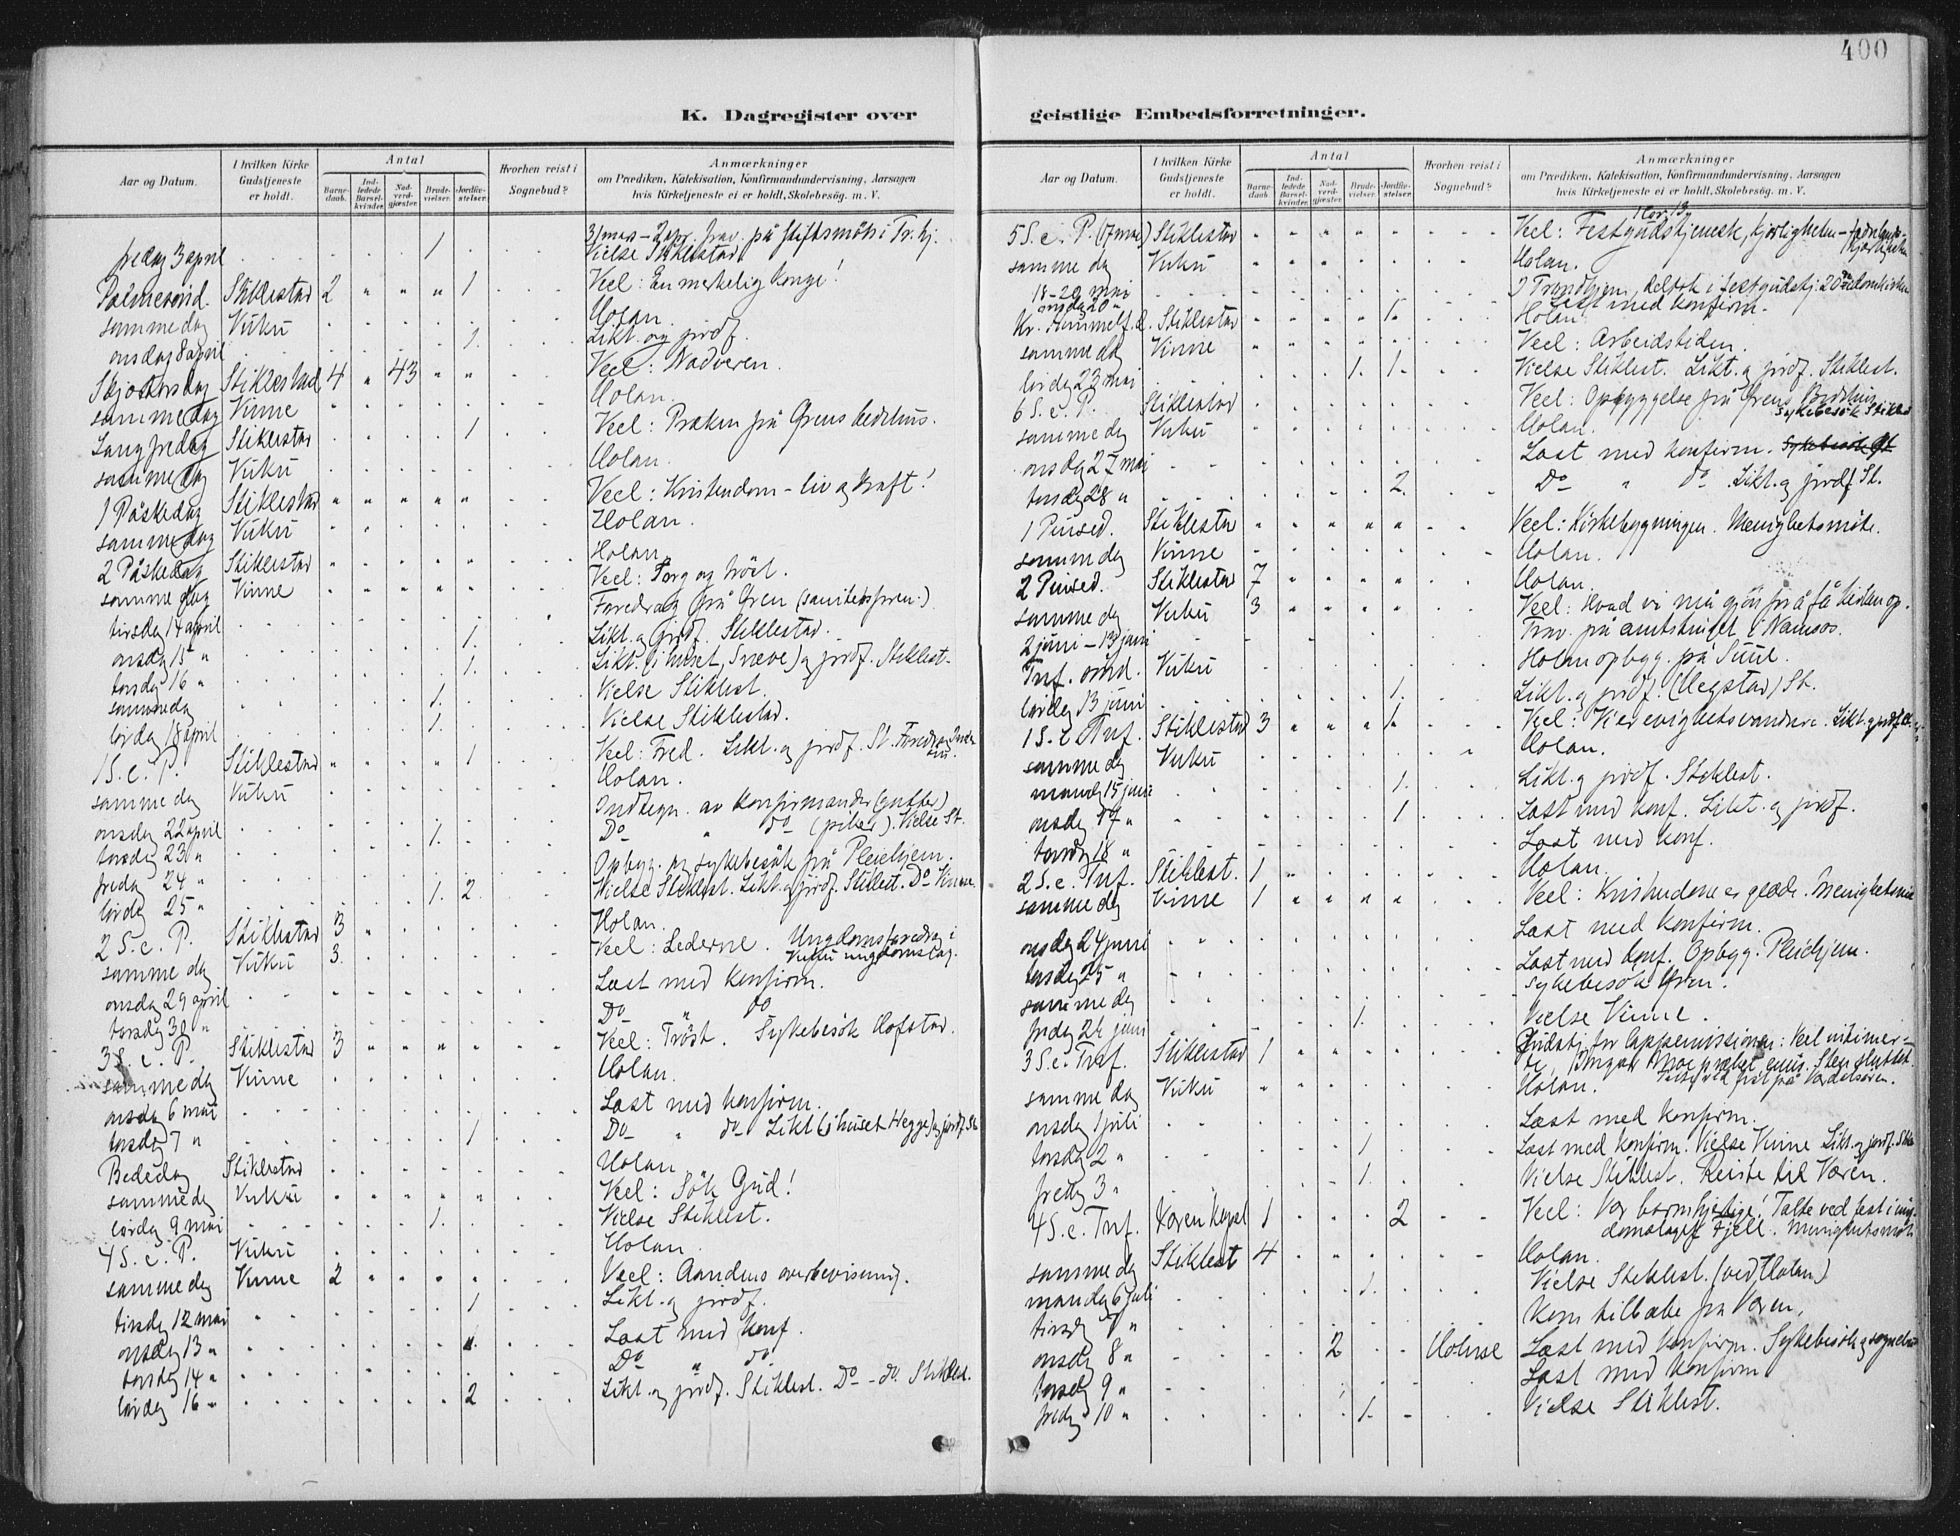 400
K. Dagregister over
geistlige Embedsforretninger.
Aar og Datum.
I hvilken Kirke Gudstjeneste er holdt.
Antal
Barnedaab.
Indledede Barselkvinder.
Nadverdgjæster.
Brudevielser.
Jordfæstelser.
Hvorhen reist i Sognebud?
Anmærkninger
om Prædiken, Katekisation, Konfirmandundervisning, Aarsagen
hvis Kirketjeneste ei er holdt, Skolebesøg. m. V.
31 mars - 2 apr. frav. på stiftsmöte i Tr.hj.
fredag 3 april 1. Vielse Stiklestad.
Palmesönd. Stiklestad 2 " " " 1 Veel: En merkelig konge!
samme dag Vuku Holan.
onsdag 8 april 1. Likt. og jordf.
Skjærtorsdag Stiklestad 4 " 43 " " Veel: Nadveren.
samme dag Vinne Holan.
Langfredag Stiklestad 1 Veel: Præken på Ørens bedehus.
samme dag Vuku Holan.
1 Påskedag Stiklestad " " " " " Veel: Kristendom - liv og kraft!
samme dag Vuku Holan.
2 Påskedag Stiklestad Holan.
samme dag Vinne Veel: Sorg og tröst.
tirsdag 14 april Foredrag på Øren (sanitetsforen.)
onsdag 15 " 1. Likt. og jordf. Stiklestad.
torsdag 16 " 1. Likt. (i huset, Sneve) og jordf. Stiklest.
samme dag 1. Vielse Stiklest.
lördag 18 april 1. Vielse Stiklestad.
1 S. e. P. Stiklestad " " " " 1 Veel: Fred. Likt. og jordf. St. Foredrag
samme dag Vuku Holan.
onsdag 22 april Indtegn. av konfirmander (gutter)
torsdag 23 " 1. Do " do (piker). Vielse St.
fredag 24 " Opbyg. og sykebesök på Pleiehjem.
lördag 25 " 1. 2. Vielse Stiklest. Likt. og jordf. Stiklest. Do Vinne.
2 S. e. P. Stiklestad 3 Holan.
samme dag Vuku 3. Veel: Lederne. Ungdomsforedrag i Vuku ungdomslag.
onsdag 29 april Læst med konfirm.
torsdag 30 " Do " do
3 S. e. P. Stiklestad 3 " " " " Veel: Tröst. Sykebesök Hofstad.
samme dag Vinne Holan.
onsdag 6 mai Læst med konfirm.
torsdag 7 " 1 Do " do Likt. (i huset Hegge) og jordf. St.
Bededag Stiklestad Holan.
samme dag Vuku " " " " " Veel: Sök Gud!
lördag 9 mai 1. Vielse Stiklest.
4 S. e. P. Vuku Holan.
samme dag Vinne 2 " " " " Veel: Aandens overbevisning.
tirsdag 12 mai 1 Likt. og jordf.
onsdag 13 " Læst med konf.
torsdag 14 " Do " do
lördag 16 " 2 Likt. og jordf. Stiklest. Do - do. Stiklest.
Aar og Datum.
I hvilken Kirke Gudstjeneste er holdt.
Antal
Barnedaab.
Indledede Barselkvinder.
Nadverdgjæster.
Brudevielser.
Jordfæstelser.
Hvorhen reist i Sognebud?
Anmærkninger
om Prædiken, Katekisation, Konfirmandundervisning, Aarsagen
hvis Kirketjeneste ei er holdt, Skolebesøg. m. V.
5 S. e. P. (17 mai) Stiklestad " " " " " Veel: Festgudstjeneste, kjærligheten - fædrelandskjærligheten
samme dag Vuku Holan.
18-20 mai I Trondhjem, deltok i festgudstj. 20de i domkirken
onsdag 20 " Læst med konfirm.
Kr. Himmelf.d. Stiklestad 1. Holan.
samme dag Vinne Veel: Arbeidstiden.
lördag 23 mai 1. 1. Vielse Stiklest. Likt. og jordf. Stiklest.
6 S. e. P. Stiklestad Veel: Opbyggelse på Ørens Bedehus.
samme dag Vuku Holan. Sykebesök Stiklest
onsdag 27 mai Læst med konfirm.
torsdag 28 " 2. Do " do Likt. og jordf. St.
1 Pinsed. Stiklestad " " " " " Veel: Kirkebygningen. Menighetsmöte.
samme dag Vinne Holan.
2 Pinsed. Stiklestad 7 " " " " Holan.
samme dag Vuku 3 Veel: Hvad vi må gjöre for å få kirken op.
2 juni - 13 juni Frav. på amtstinget i Namsos.
Tref. sönd. Vuku Holan opbyg. på Suul.
lördag 13 juni 1. Likt. og jordf. (Hegstad) St.
1 S. e. Tref. Stiklestad 3 " " " 1. Veel: Vi er evighetsvandrere. Likt. og jordf.
samme dag Vuku Holan.
mandag 15 juni 1. Likt. og jordf. Stiklest.
onsdag 17 " 1 Læst med konf. Likt. og jordf.
torsdag 18 " Læst med konf.
2 S. e. Tref. Stiklest. 1 Holan.
samme dag Vinne 1 " " " " Veel: Kristendom er glæde. Menighetsmöte
onsdag 24 juni Læst med konfirm.
torsdag 25 " Læst med konf. Opbyg. Pleiehjem.
samme dag Sykebesök Øren.
fredag 26 juni 1. Vielse Vinne.
3 S. e. Tref. Stiklestad 1 " " " " Gudstj. for lappemissionen: Veel
samme dag Vuku " Holan.
onsdag 1 juli Læst med konfirm.
torsdag 2 " 1 Læst med konfirm. Vielse Vinne Likt. og jordf. Stikl
fredag 3 " 1. Vielse Stiklest. Reiste til Væren.
4 S. e. Tref. Væren kapel 1 2 Veel: Vær barmhjertige! Talte ved fest i ungdomslaget Fjell. Menighetsmöte
samme dag Stiklest 4 Holan.
mandag 6 juli 1. Vielse Stiklest. (ved Holan)
tirsdag 7 " Kom tilbake fra Væren.
onsdag 8 " 2 Holme Læst med konfirm. Sykebesök og sognebud
torsdag 9 " Læst med konfirm
fredag 10 " 1. Vielse Stiklest.